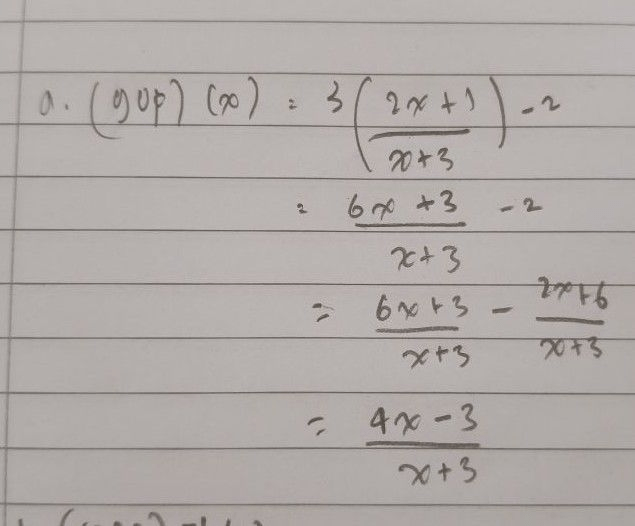 a. (gop) (x) = 3 ((2x+1)/(x+3)) - 2
= (6x+3)/(x+3) - 2
= (6x+3)/(x+3) - (2x+6)/(x+3)
= (4x-3)/(x+3)